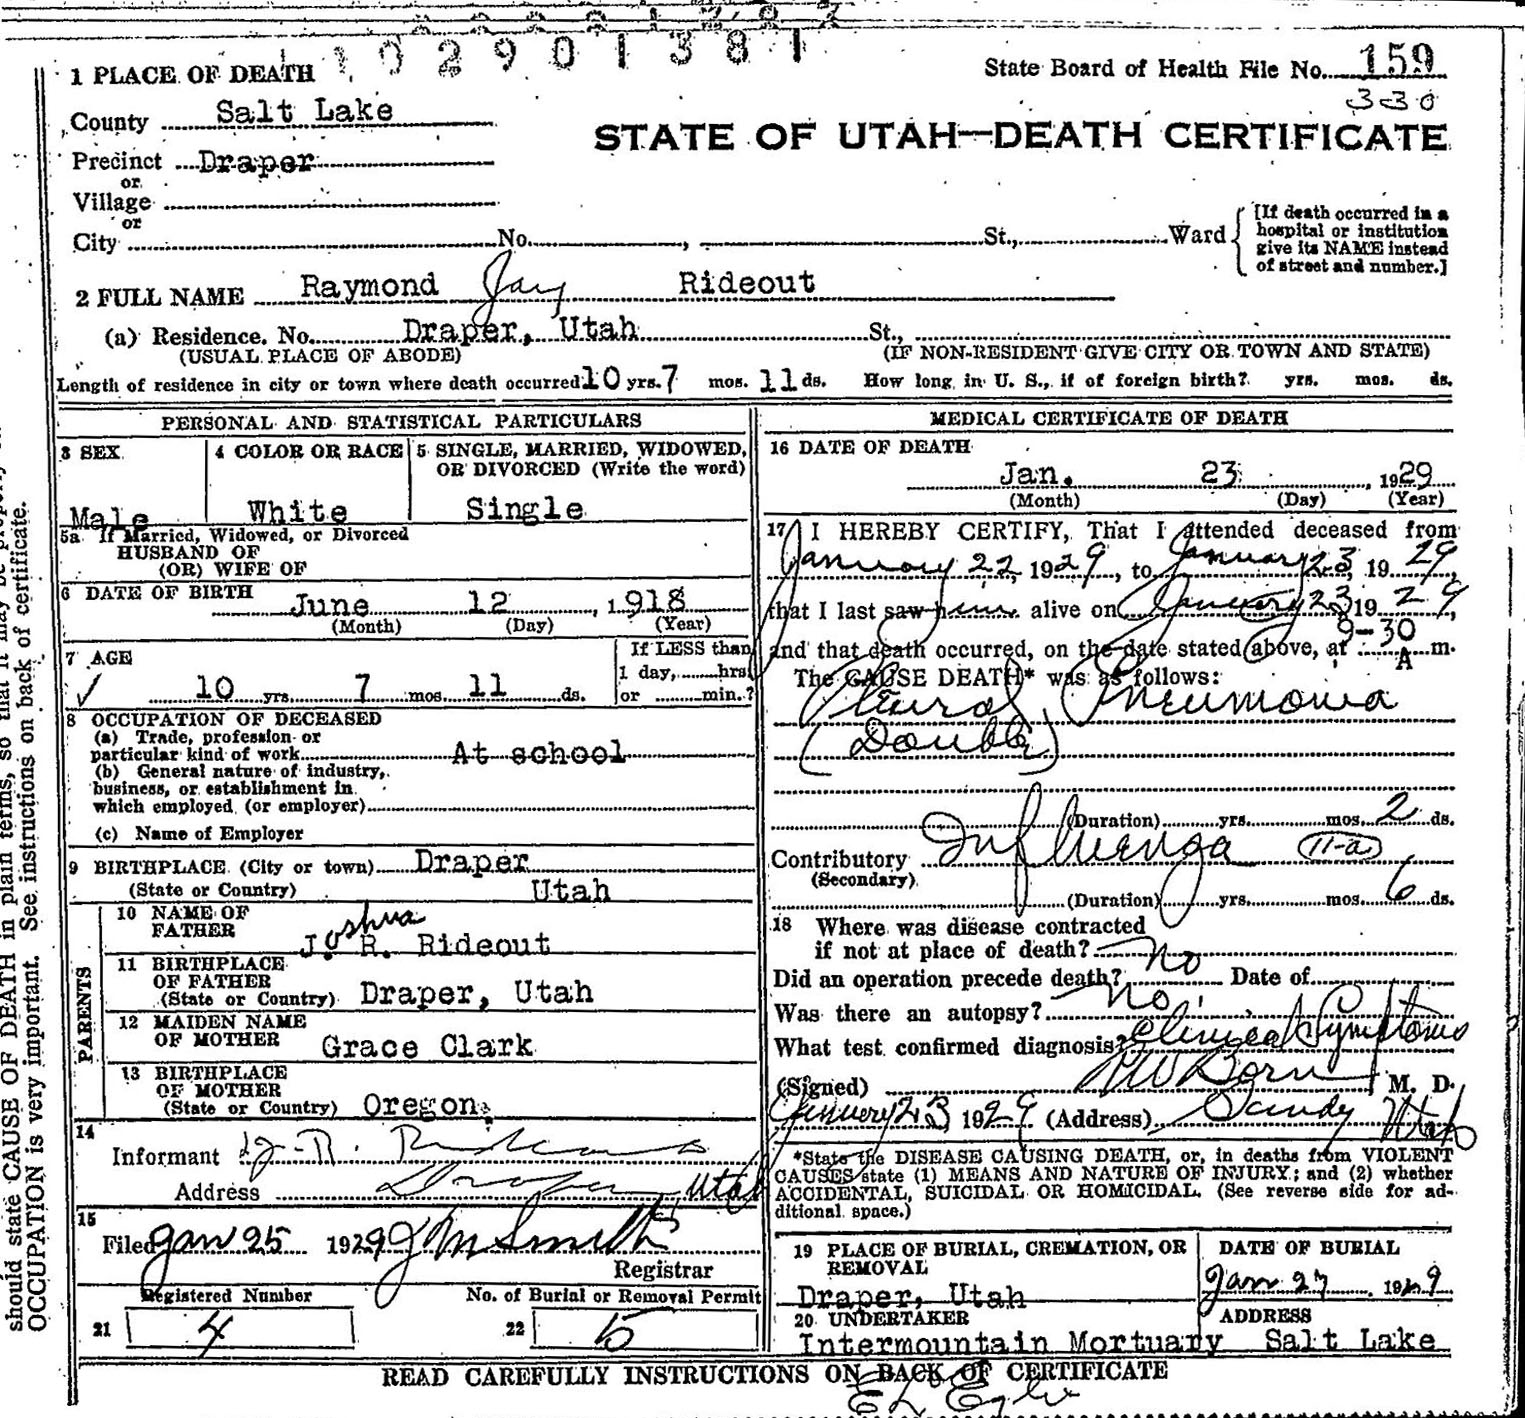 102901381
1 PLACE OF DEATH
State Board of Health File No. 159
330
County Salt Lake
STATE OF UTAH—DEATH CERTIFICATE
Precinct Draper
or
Village
or
City No. , St., Ward
[If death occurred in a hospital or institution give its NAME instead of street and number.]
2 FULL NAME Raymond Jay Rideout
(a) Residence. No. Draper, Utah St.,
(USUAL PLACE OF ABODE) (IF NON-RESIDENT GIVE CITY OR TOWN AND STATE)
Length of residence in city or town where death occurred 10 yrs. 7 mos. 11 ds. How long in U. S., if of foreign birth? yrs. mos. ds.
PERSONAL AND STATISTICAL PARTICULARS
3 SEX
Male
4 COLOR OR RACE
White
5 SINGLE, MARRIED, WIDOWED,
OR DIVORCED (Write the word)
Single
5a If Married, Widowed, or Divorced
HUSBAND OF
(OR) WIFE OF
6 DATE OF BIRTH June 12, 1918
(Month) (Day) (Year)
7 AGE
10 yrs. 7 mos. 11 ds.
If LESS than
1 day, hrs.
or min.?
8 OCCUPATION OF DECEASED
(a) Trade, profession or
particular kind of work At school
(b) General nature of industry,
business, or establishment in
which employed (or employer)
(c) Name of Employer
9 BIRTHPLACE (City or town) Draper
(State or Country) Utah
PARENTS
10 NAME OF
FATHER
Joshua
J. R. Rideout
11 BIRTHPLACE
OF FATHER
(State or Country) Draper, Utah
12 MAIDEN NAME
OF MOTHER Grace Clark
13 BIRTHPLACE
OF MOTHER
(State or Country) Oregon.
14
Informant J. R. Rideout
Address Draper Utah
15
Filed Jan 25 1929 J M Smith
Registrar
Registered Number
21 4
No. of Burial or Removal Permit
22 5
MEDICAL CERTIFICATE OF DEATH
16 DATE OF DEATH
Jan. 23, 1929
(Month) (Day) (Year)
17 I HEREBY CERTIFY, That I attended deceased from
January 22, 1929, to January 23, 1929,
that I last saw him alive on January 23 1929,
and that death occurred, on the date stated above, at 9-30 A m.
The CAUSE DEATH* was as follows:
Pleural Pneumonia
(Double)
(Duration) yrs. mos. 2 ds.
Contributory Influenza 11-a
(Secondary)
(Duration) yrs. mos. 6 ds.
18 Where was disease contracted
if not at place of death?
Did an operation precede death? No Date of
Was there an autopsy? No
What test confirmed diagnosis? Clinical Symptoms
(Signed) M. D.
January 23 1929 (Address) Sandy Utah
*State the DISEASE CAUSING DEATH, or, in deaths from VIOLENT
CAUSES state (1) MEANS AND NATURE OF INJURY; and (2) whether
ACCIDENTAL, SUICIDAL OR HOMICIDAL. (See reverse side for ad-
ditional space.)
19 PLACE OF BURIAL, CREMATION, OR
REMOVAL
Draper, Utah
DATE OF BURIAL
Jan 27, 1929
20 UNDERTAKER
Intermountain Mortuary
ADDRESS
Salt Lake
READ CAREFULLY INSTRUCTIONS ON BACK OF CERTIFICATE
should state CAUSE OF DEATH in plain terms, so that it may be properly
OCCUPATION is very important. See instructions on back of certificate.